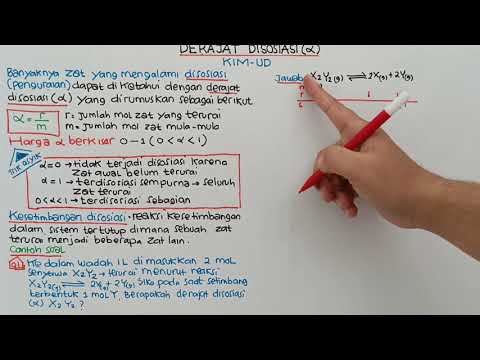 DERAJAT DISOSIASI (α)
KIM-UD
Banyaknya zat yang mengalami disosiasi
(penguraian) dapat diketahui dengan derajat
disosiasi (α) yang dirumuskan sebagai berikut
α = r/m
r = Jumlah mol zat yang terurai
m = Jumlah mol zat mula-mula
Harga α berkisar 0-1 (0<α<1)
Trik asyik
α=0 → tidak terjadi disosiasi karena
zat awal belum terurai
α=1 → terdisosiasi sempurna → seluruh
zat terurai
0<α<1 → terdisosiasi sebagian
Kesetimbangan disosiasi → reaksi kesetimbangan
dalam sistem tertutup dimana sebuah zat
terurai menjadi beberapa zat lain.
Contoh soal
dalam wadah 1L dimasukkan 2 mol
senyawa X2Y2 → terurai menurut reaksi
X2Y2(g) ⇌ 2X(g) + 2Y(g) Jika pada saat setimbang
terbentuk 1 mol Y. Berapakah derajat disosiasi
(α) X2Y2 ?
Jawab:
X2Y2(g) ⇌ 2X(g) + 2Y(g)
r
s